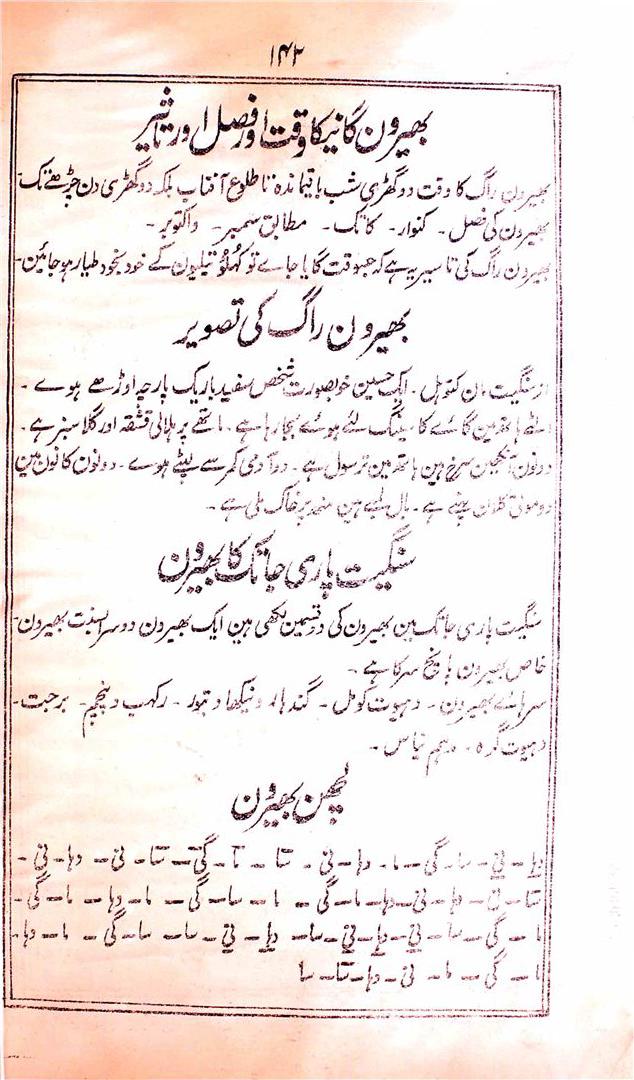 ۱۴۲
بھیرون گانیکا وقت اور فصل اور تاثیر
بھیرون راگ کا وقت دو گھڑی شب باقیماندہ تا طلوع آفتاب بلکہ دو گھڑی دن چڑھنے تک۔
بھیرون کی فصل ۔ کنوار ۔ کاتک ۔ مطابق ستمبر ۔ واکتوبر ۔
بھیرون راگ کی تاسیر یہ ہے کہ جسوقت گایا جاے تو کہلو تیلیون کے خود بخود طیار ہو جائین۔
بھیرون راگ کی تصویر
از سنگیت ۔ ایک حسین خوبصورت شخص سفید باریک پارچہ اوڑھے ہوے ۔
ہاتھ مین گائے کا سینگ لئے ہوئے بجا رہا ہے ۔ ماتھے پر ہلالی قشقہ اور گلا سبز ہے ۔
دونون آنکھین سرخ ہین ہاتھ مین ترسول ہے ۔ دو آدمی کمر سے لپٹے ہوے ۔ دونون کانون مین
دو موتی کلان پہنے ہے ۔ بال لمبے ہین منھ پر خاک ملی ہے ۔
سنگیت پاری جاتک کا بھیرون
سنگیت پاری جاتک مین بھیرون کی دو قسمین لکھی ہین ایک بھیرون دوسرا بسنت بھیرون۔
خاص بھیرون پانچ سر کا ہے ۔
سرہائے بھیرون ۔ دہیوت کومل ۔ گندہار و نیکھاد تیور ۔ رکھب و پنچم ۔ برجت ۔
دہیوت گرہ ۔ مدہم نیاس ۔
لچھن بھیرون
دہا ۔ نی ۔ سا ۔ گی ۔ ما ۔ دہا ۔ نی ۔ سا ۔ گی ۔ سا ۔ نی ۔ دہا ۔ نی ۔
سا ۔ نی ۔ دہا ۔ نی ۔ دہا ۔ ما ۔ گی ۔ ما ۔ سا ۔ گی ۔ ما ۔ دہا ۔ ما ۔ گی ۔
ما ۔ گی ۔ سا ۔ نی ۔ دہا ۔ نی ۔ سا ۔ دہا ۔ نی ۔ سا ۔ سا ۔ گی ۔ ما ۔ دہا ۔
ما ۔ گی ۔ ما ۔ نی ۔ دہا ۔ سا ۔ سا